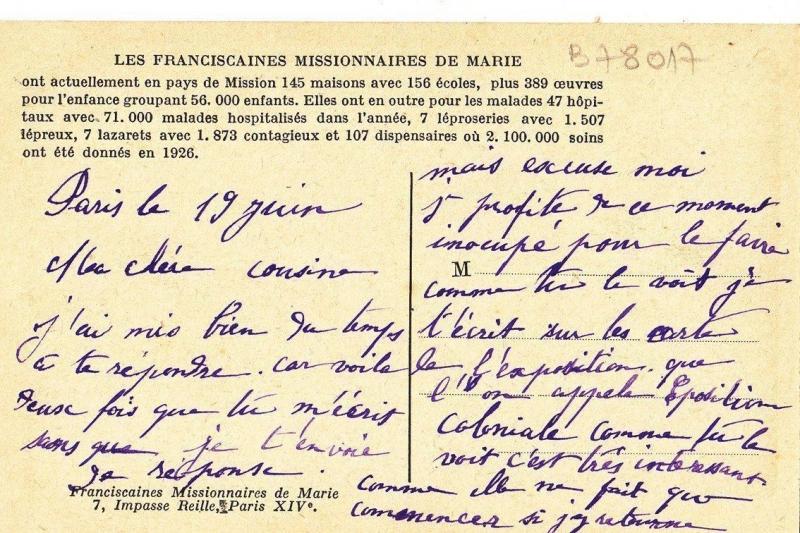 LES FRANCISCAINES MISSIONNAIRES DE MARIE
B78017
ont actuellement en pays de Mission 145 maisons avec 156 écoles, plus 389 œuvres
pour l'enfance groupant 56.000 enfants. Elles ont en outre pour les malades 47 hôpi-
taux avec 71.000 malades hospitalisés dans l'année, 7 léproseries avec 1.507
lépreux, 7 lazarets avec 1.873 contagieux et 107 dispensaires où 2.100.000 soins
ont été donnés en 1926.
Paris le 19 juin
Ma chére cousine
j'ai mis bien du temps
à te répondre. car voila
deux fois que tu m'écris
sans que je t'envoie
de réponse.
Franciscaines Missionnaires de Marie
7, Impasse Reille, Paris XIVe.
mais excuse moi
j' profite de ce moment
inocupé pour le faire
M
comme tu le voit je
t'écrit sur les carte
de l'exposition que
l'on appela Eposition
coloniale comme tu le
voit c'est très interessant
comme elle ne fait que
commencer si j'y retourne